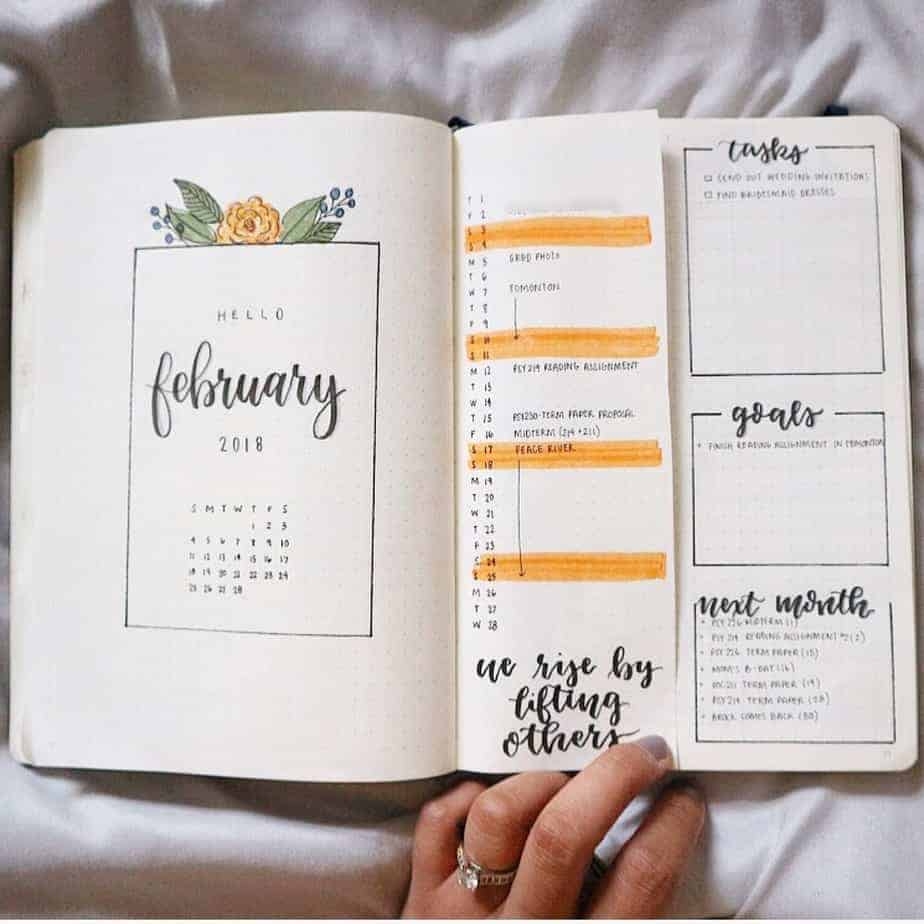 HELLO
february
2018
S M T W T F S
1 2 3
4 5 6 7 8 9 10
11 12 13 14 15 16 17
18 19 20 21 22 23 24
25 26 27 28
T 1
F 2
S 3
S 4
M 5 GRAD PHOTO
T 6
W 7 EDMONTON
T 8
F 9
S 10
S 11
M 12 PSY219 READING ASSIGNMENT
T 13
W 14
T 15 PSY230-TERM PAPER PROPOSAL
F 16 MIDTERM (214 + 211)
S 17 PEACE RIVER
S 18
M 19
T 20
W 21
T 22
F 23
S 24
S 25
M 26
T 27
W 28
we rise by
lifting
others
tasks
SEND OUT WEDDING INVITATIONS
FIND BRIDESMAID DRESSES
goals
FINISH READING ASSIGNMENT IN EDMONTON
next month
PSY 226 MIDTERM (1)
PSY 219 READING ASSIGNMENT #2 (2)
PSY 226 TERM PAPER (15)
MOM'S B-DAY (16)
TERM PAPER (19)
PSY219 TERM PAPER (28)
BROCK COMES BACK (30)